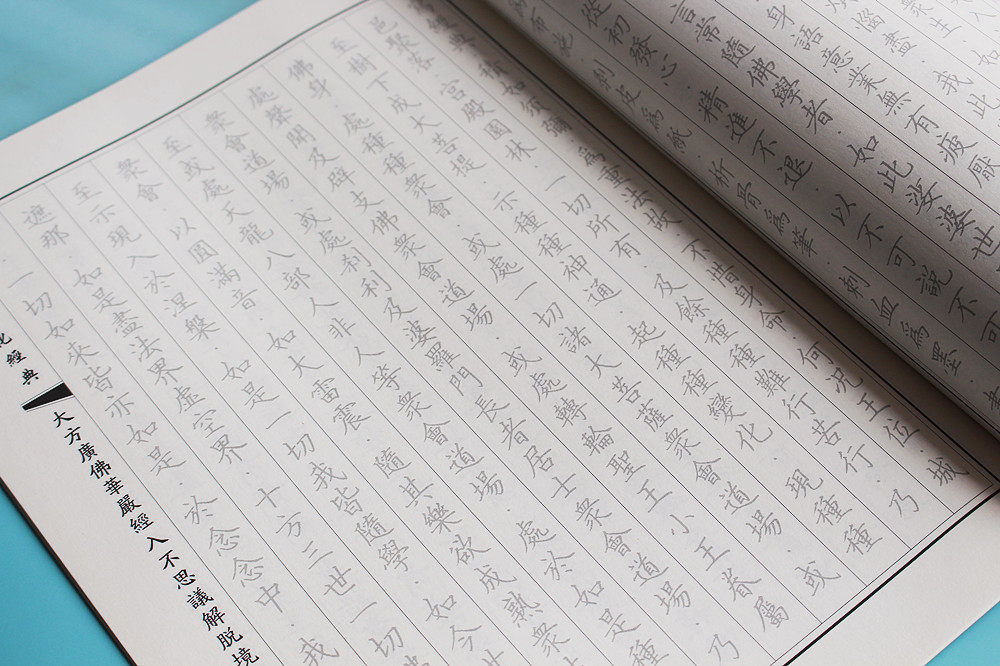 如
眾生 煩惱盡 我此
身語意業無有疲厭
言常隨佛學者 如此娑婆世
從初發心 精進不退 以不可說不可
剝皮為紙 析骨為筆 刺血為墨 書
經典 積如須彌 為重法故 不惜身命 何況王位 城
邑聚落 宮殿園林 一切所有 及餘種種難行苦行 乃
至樹下成大菩提 示種種神通 起種種變化 現種種
佛身 處種種眾會 或處一切諸大菩薩眾會道場 或
處聲聞及辟支佛眾會道場 或處轉輪聖王小王眷屬
眾會道場 或處剎利及婆羅門長者居士眾會道場 乃
至或處天龍八部人非人等眾會道場 處於如是種
眾會 以圓滿音 如大雷震 隨其樂欲成熟眾
至示現入於涅槃 如是一切我皆隨學 如今
遮那 如是盡法界虛空界 十方三世一切
一切如來皆亦如是 於念念中 我
經典 大方廣佛華嚴經入不思議解脫境